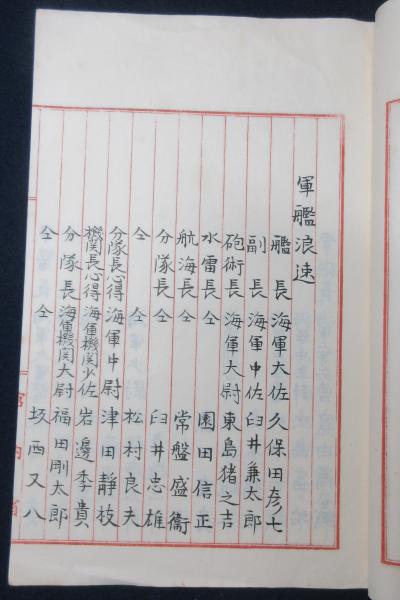 軍艦浪速
艦長 海軍大佐 久保田彦七
副長 海軍中佐 臼井兼太郎
砲術長 海軍大尉 東島猪之吉
水雷長 仝 園田信正
航海長 仝 常盤盛衞
分隊長 仝 臼井忠雄
仝 仝 松村良夫
分隊長心得 海軍中尉 津田靜枝
機関長心得 海軍機関少佐 岩邊季貴
分隊長 海軍機関大尉 福田剛太郎
仝 仝 坂西又八
宮内省